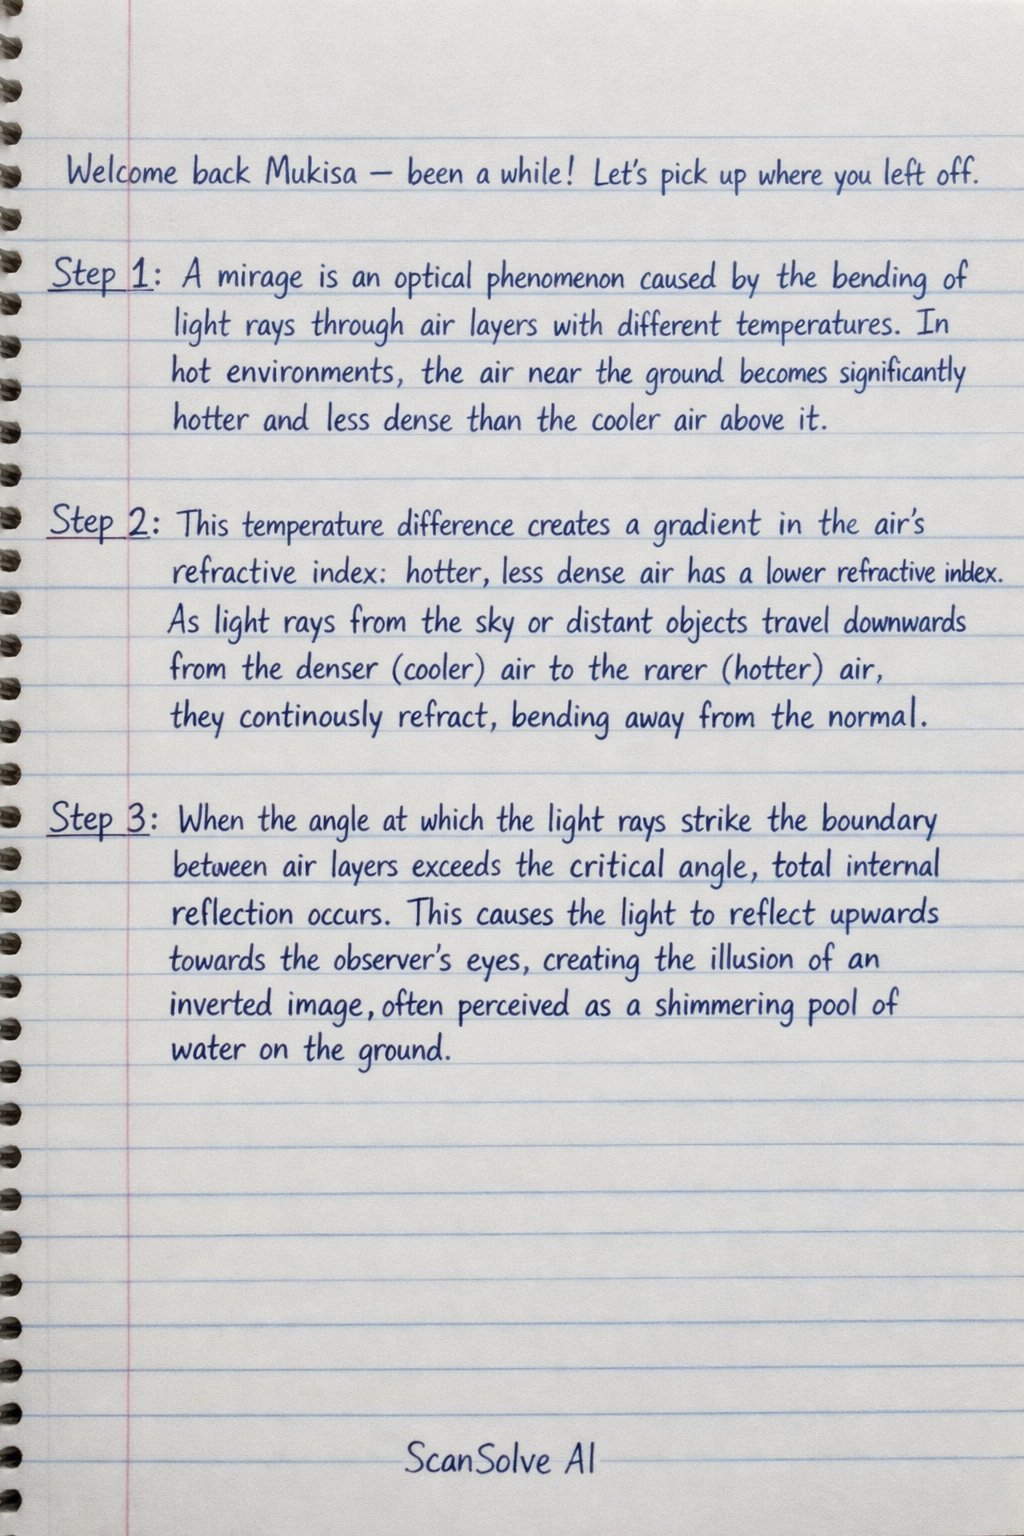 Welcome back Mukisa — been a while! Let's pick up where you left off.
Step 1: A mirage is an optical phenomenon caused by the bending of
light rays through air layers with different temperatures. In
hot environments, the air near the ground becomes significantly
hotter and less dense than the cooler air above it.
Step 2: This temperature difference creates a gradient in the air's
refractive index: hotter, less dense air has a lower refractive index.
As light rays from the sky or distant objects travel downwards
from the denser (cooler) air to the rarer (hotter) air,
they continously refract, bending away from the normal.
Step 3: When the angle at which the light rays strike the boundary
between air layers exceeds the critical angle, total internal
reflection occurs. This causes the light to reflect upwards
towards the observer's eyes, creating the illusion of an
inverted image, often perceived as a shimmering pool of
water on the ground.
ScanSolve AI